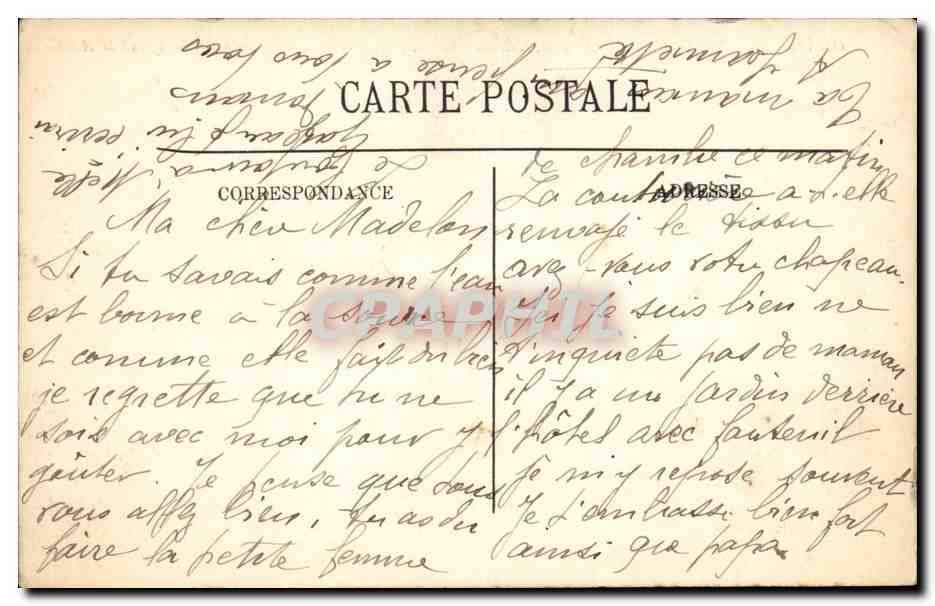 CARTE POSTALE
CORRESPONDANCE
ADRESSE
Ma chère Madelon
Si tu savais comme l'eau
est bonne à la source
et comme elle fait du bien
je regrette que tu ne
sois avec moi pour y
goûter. Je pense que tous
vous allez bien, tu as du
faire la petite femme
de chambre ce matin
La couturière a-t-elle
renvoyé le tissu
avez-vous votre chapeau
Ici je suis bien ne
t'inquiete pas de maman
il y a un jardin derrière
l'hôtel avec fauteuil
je m'y repose souvent
Je t'embrasse bien fort
ainsi que papa
Ta maman
pense à tous tous
A Jeannette
CPAPHIL